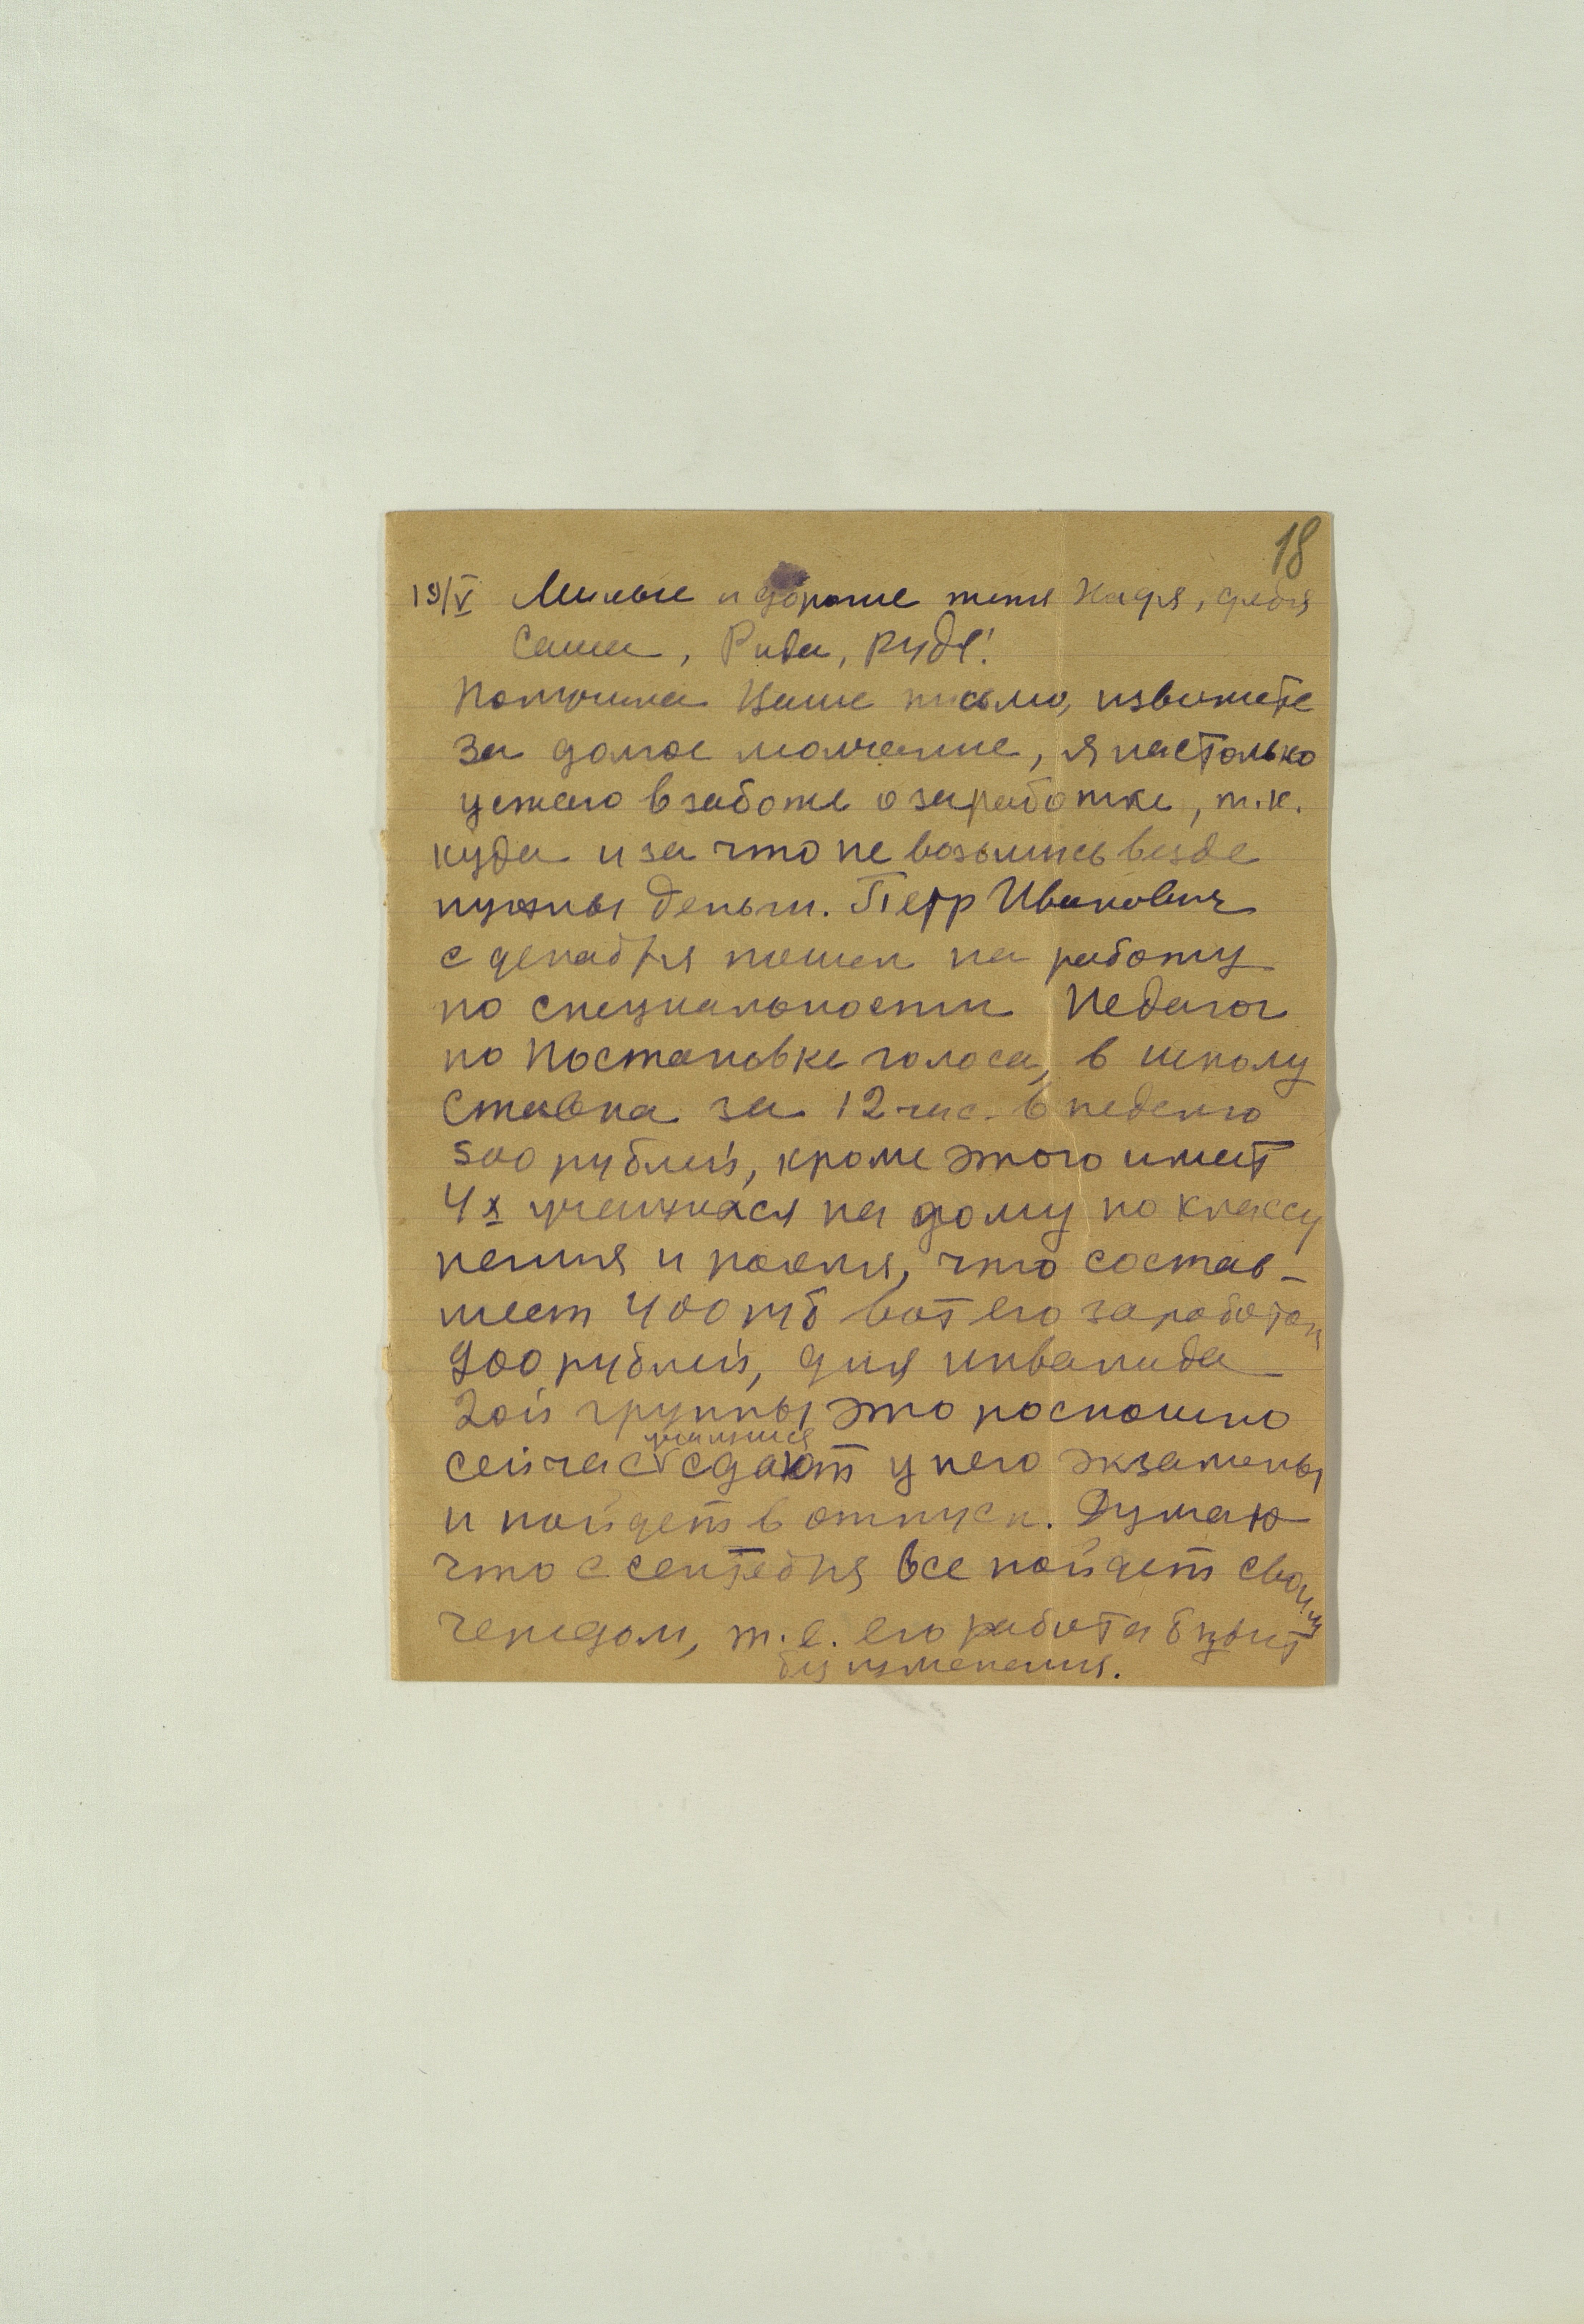 18
19/V Милые и дорогие тетя Надя, дядя
Саша, Рида, Рудя!
Получила Ваше письмо, извините
за долгое молчание, я настолько
ушла в заботы о заработке, т.к.
куда и за что не возьмись везде
нужны деньги. Петр Иванович
с декабря пошел на работу
по специальности Педагог
по Постановке голоса, в школу
Ставка за 12 час. в неделю
500 рублей, кроме этого имеет
4х учащихся на дому по классу
пения и рояля, что состав-
ляет 400 руб вот его заработок
900 рублей, для инвалида
2ой группы это роскошно
учащиеся
сейчас сдают у него экзамены
и пойдет в отпуск. Думаю
что с сентября все пойдет своим
чередом, т.е. его работа будет
без изменения.